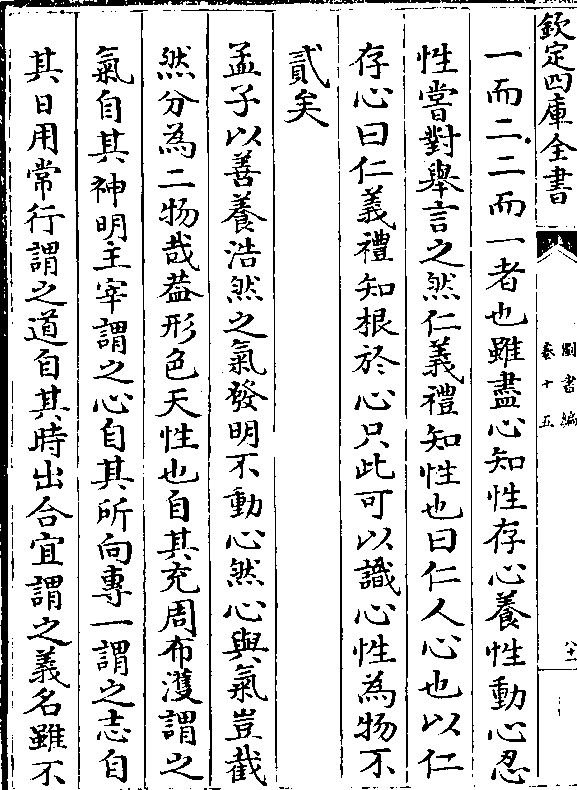 欽定四庫全書
圖書編
卷十五
一而二二而一者也雖盡心知性存心養性動心忍
性嘗對舉言之然仁義禮知性也曰仁人心也以仁
存心曰仁義禮知根於心只此可以識心性為物不
貳矣
孟子以善養浩然之氣發明不動心然心與氣豈截
然分為二物哉葢形色天性也自其充周布濩謂之
氣自其神明主宰謂之心自其所向專一謂之志自
其日用常行謂之道自其時出合宜謂之義名雖不